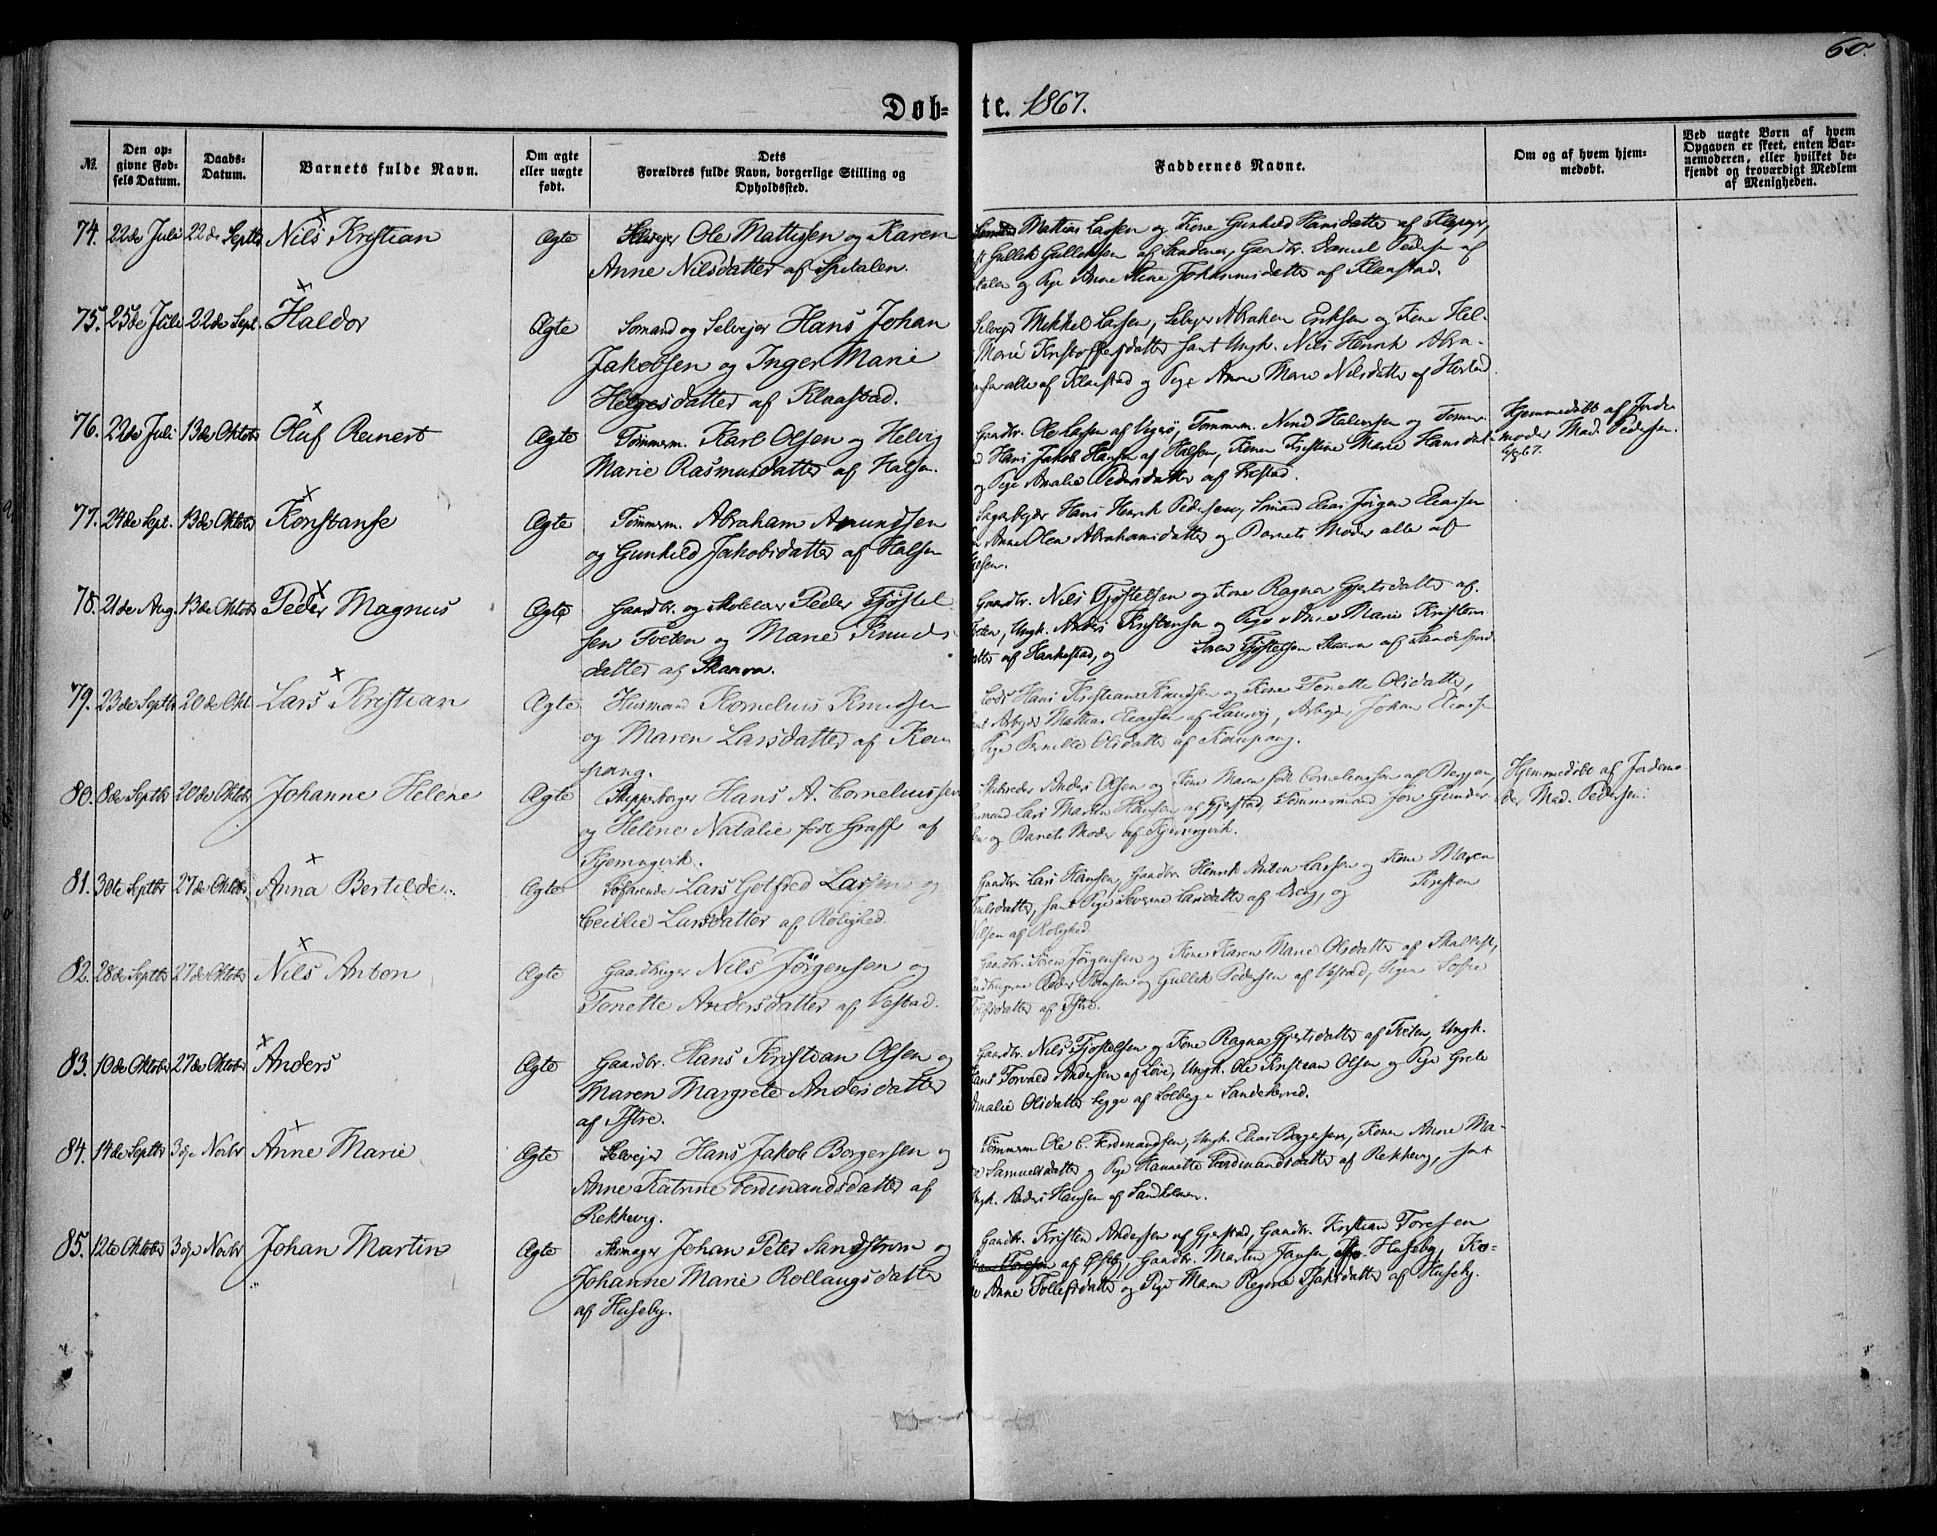 60.
Døb= te. 1867.
№
Den op-
givne Fød-
sels Datum.
Daabs-
Datum.
Barnets fulde Navn.
Om ægte
eller uægte
født.
Dets
Forældres fulde Navn, borgerlige Stilling og
Opholdssted.
Faddernes Navne.
Om og af hvem hjem-
medøbt.
Ved uægte Børn af hvem
Opgaven er skeet, enten Bar-
nemoderen, eller hvilket be-
kjendt og troværdigt Medlem
af Menigheden.
74. 22de Juli 22de Septbr Nils Kristian Ægte Selveier Ole Mattissen og Karen
Anne Nilsdatter af Spitalen.
Mathias Larsen og Kone Gunhild Hansdatter af
Gullik Gulliksen af Sandenes, Gaardbr. Samuel Pedersen af
og Pige Anne Stine Johannesdatter af Klaastad.
75. 25de Juli 22de Sept. Haldor Ægte Sømand og Selveier Hans Johan
Jakobsen og Inger Marie
Helgesdatter af Klaastad.
Selveier Mikkel Larsen, Selveier Abraham Eriksen og Kone Hel-
Marie Kristoffersdatter samt Ungk. Nils Henrik Abra-
alle af Klaastad og Pige Anne Marie Nilsdatter af
76. 22de Juli 13de Oktobr Oluf Reinert Ægte Tømmerm. Karl Olsen og Helvig
Marie Rasmusdatter af Halsen.
Gaardbr. Ole Larsen af Tømmerm. Halvorsen og Tømmer-
Hans Jakob Hansen af Halsen, Konen Kristine Marie Hansdat-
og Pige Amalie Pedersdatter af
Hjemmedøbt af Jorde-
moder Mad. Pedersen.
77. 24de Sept. 13de Oktobr Konstanse Ægte Tømmerm. Abraham Amundsen
og Gunhild Jakobsdatter af Halsen
Hans Henrik Pedersen, Sømand Elias Jørgen Eliassen
Anne Olea Abrahamsdatter og Barnets Moder alle af
78. 21de Aug. 13de Oktobr Peder Magnus Ægte Gaardbr. og Skolelærer Peder Tjøstel-
sen Tveten og Marie Knuds-
datter af Skaara.
Gaardbr. Nils Tjøstelsen og Kone Ragna Gjertsdatter af
Tveten, Ungk. Anders Kristensen og Pige Anne Marie Kristens-
datter af Hankestad, og Søren Tjøstelsen Skaara af Sandefjord
79. 23de Septbr 20de Okt. Lars Kristian Ægte Husmand Kornelius Knudsen
og Maren Larsdatter af Kau-
pang.
Hans Kristian Knudsen og Kone Tonette Olsdatter,
Mathias Eliassen af Laurvig, Arbeider Johan Eliassen
Pige Pernille Olsdatter af Kaupang.
80. 8de Septbr 20de Oktobr Johanne Helene Ægte Skipperborger Hans A. Corneliussen
og Helene Natalie født Graff af
Kjerringvik.
Anders Olsen og Kone Maren født Corneliussen af
Lars Martin Hansen af Gjerstad, Tømmermand Jon Gunder-
og Barnets Moder af Kjerringvik.
Hjemmedøbt af Jordemo-
der Mad. Pedersen.
81. 30te Septbr 27de Oktobr Anna Bertilde Ægte Søfarende Lars Gotfred Larsen og
Cecilie Larsdatter af Rolighed.
Gaardbr. Lars Hansen, Gaardbr. Henrik Anton Larsen og Kone Maren
samt Pige Severine Larsdatter af Berg, og Kristen
Nilsen af Rolighed.
82. 28de Septbr 27de Oktobr Nils Anton Ægte Gaardbruger Nils Jørgensen og
Tonette Andersdatter af Vestad.
Gaardbr. Søren Jørgensen og Kone Karen Marie Olsdatter af
Peder Hansen og Gullik Pedersen af Vestad, Pigen Sofie
af Istre.
83. 10de Oktobr 27de Oktobr Anders Ægte Gaardbr. Hans Kristian Olsen og
Maren Margrete Andersdatter
af Istre.
Gaardbr. Nils Tjøstelsen og Kone Ragna Gjertsdatter af Tveten, Ungk.
Hans Torvald Andersen af Løve, Ungk. Ole Kristian Olsen og Pige Grete
Amalie Olsdatter begge af Solberg i Sandeherred.
84. 14de Septbr 3die Novbr Anne Marie Ægte Selveier Hans Jakob Borgersen og
Anne Katrine Ferdinandsdatter af
Rekkevig.
Tømmerm. Ole C. Ferdinandsen, Ungk. Elias Borgersen, Konen Anne Ma-
Samuelsdatter og Pige Hannette Ferdinandsdatter af Rekkevig, samt
Ungk. Anders Hansen af
85. 12te Oktobr 3die Novbr Johan Martin Ægte Skomager Johan Peter Sandstrøm og
Johanne Marie Rollaugsdatter
af Huseby.
Gaardbr. Kristen Andersen af Gjerstad, Gaardbr. Kristian Toresen
af Østby, Gaardbr. Martin Jansen, Huseby, Ko-
ne Anne Tollefsdatter og Pige Maren Regine Isaksdatter af Huseby.